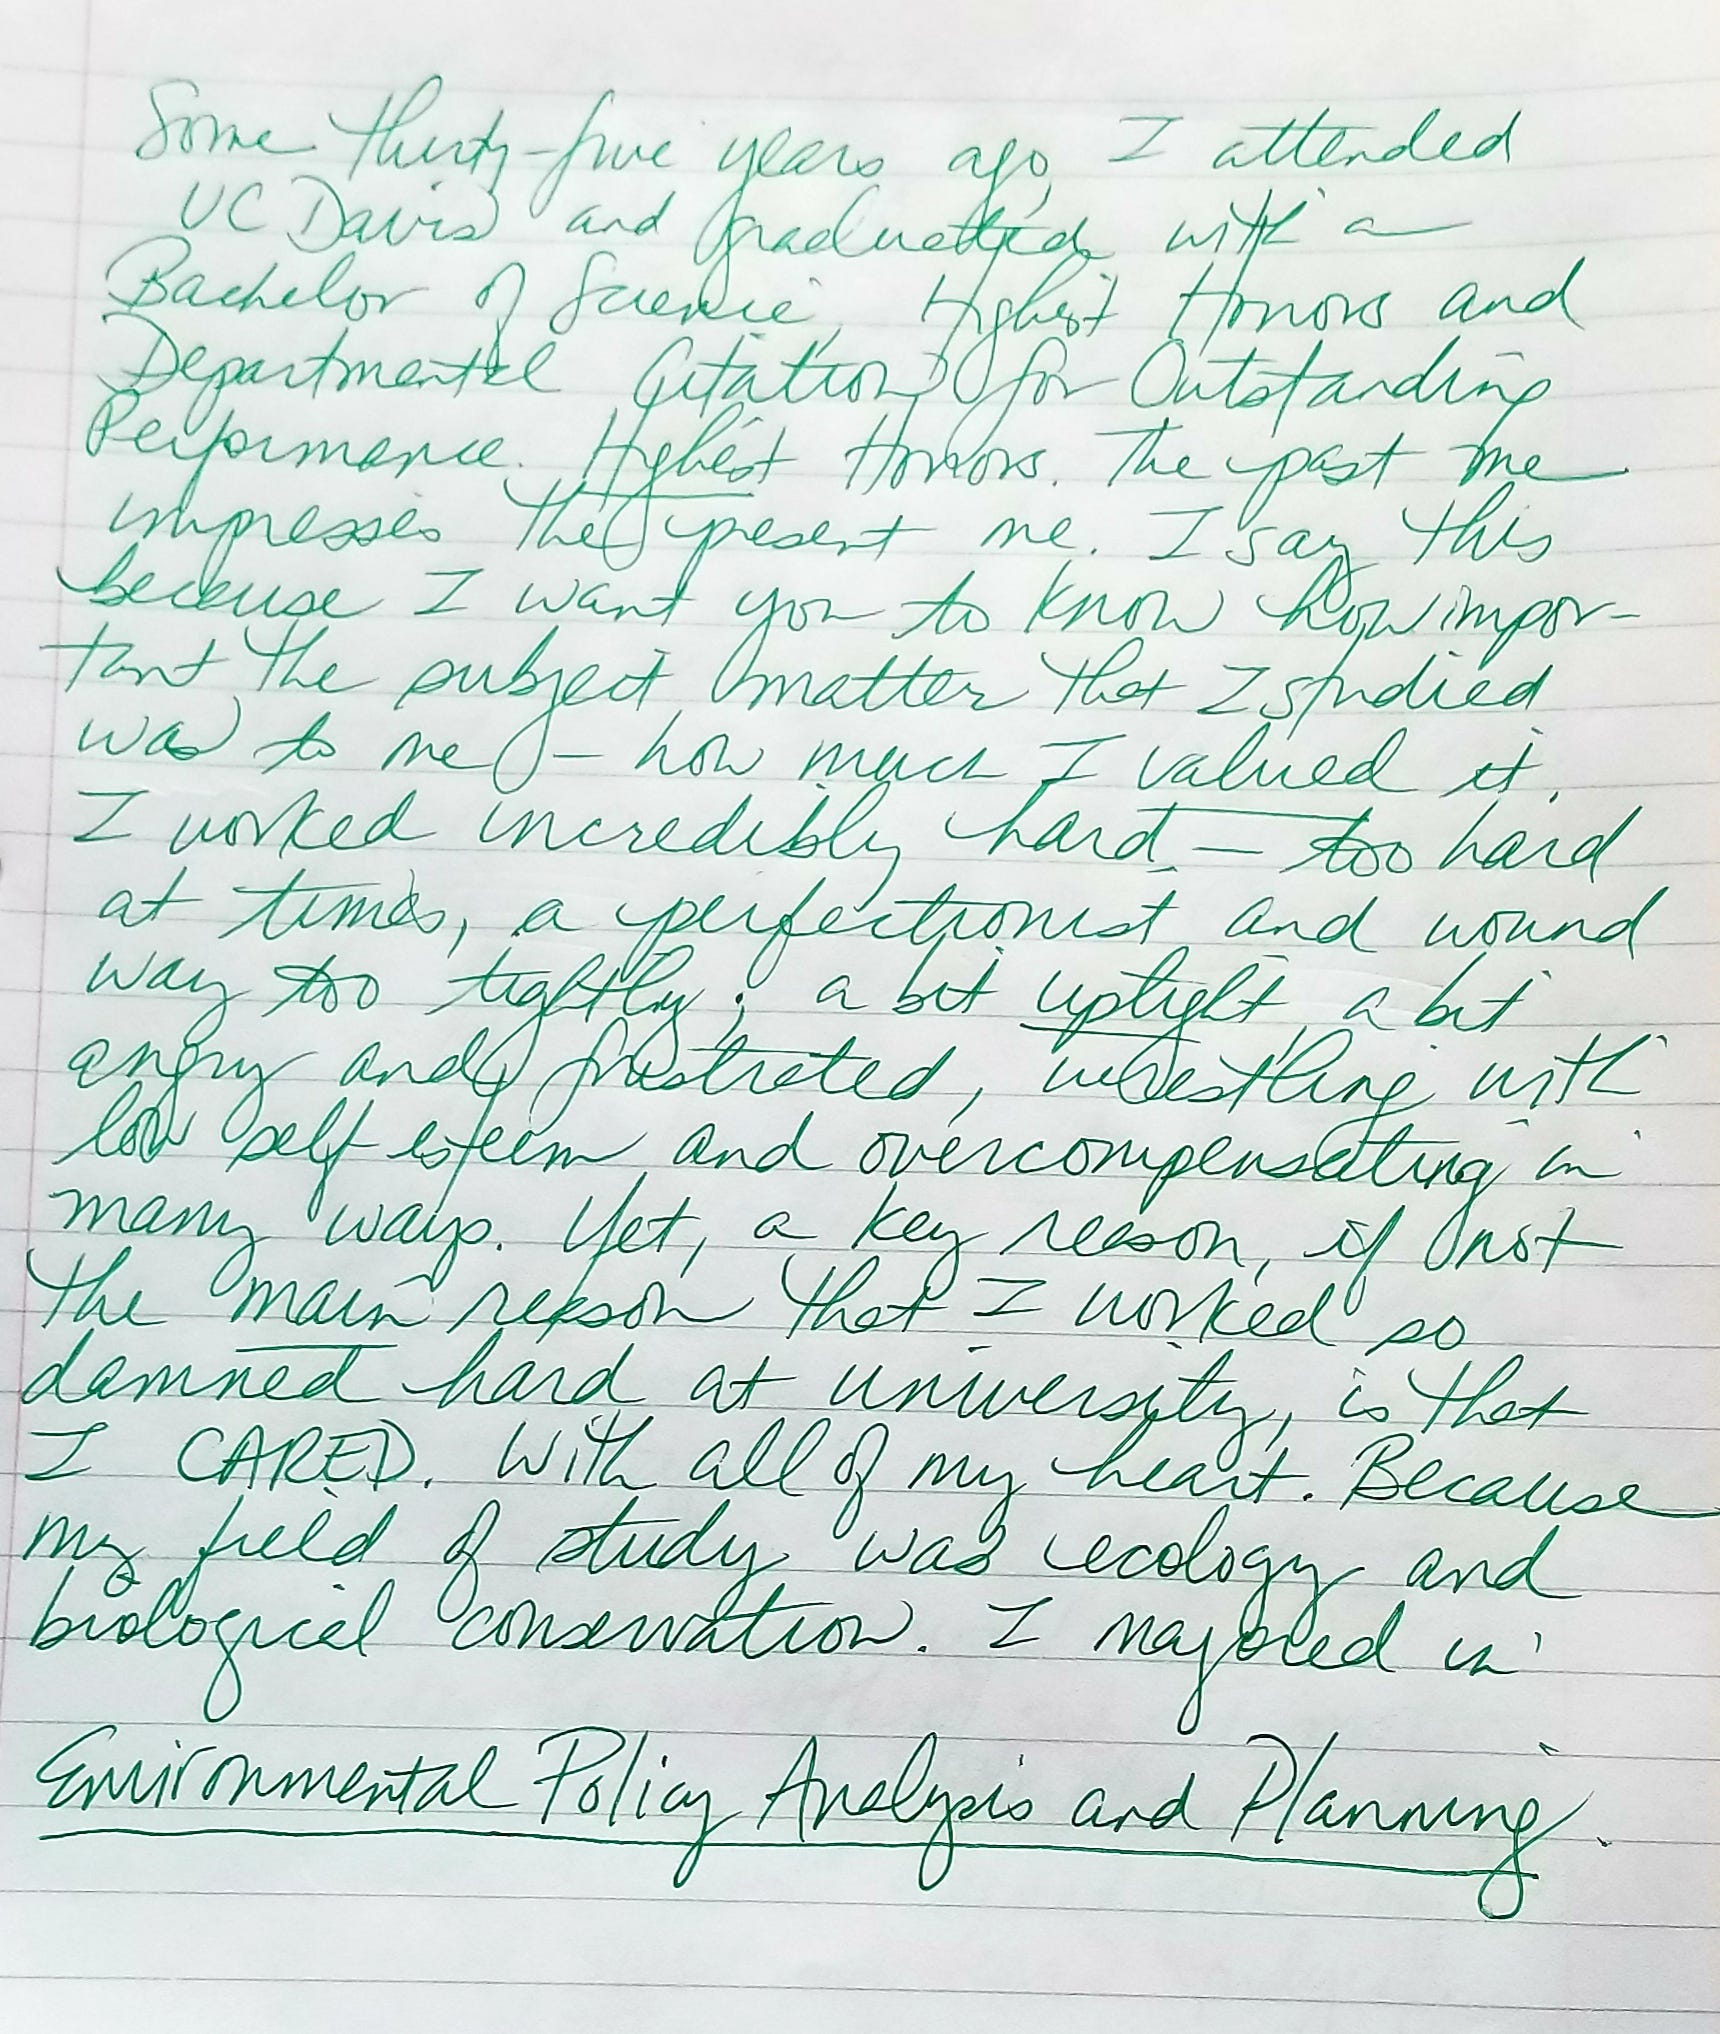 Some thirty-five years ago, I attended
UC Davis and graduated with a
Bachelor of Science, Highest Honors and
Departmental Citation for Outstanding
Performance. Highest Honors. The past me
impresses the present me. I say this
because I want you to know how impor-
tant the subject matter that I studied
was to me – how much I valued it.
I worked incredibly hard – too hard
at times, a perfectionist and wound
way too tightly; a bit uptight, a bit
angry and frustrated, wrestling with
low self esteem and overcompensating in
many ways. Yet, a key reason, if not
the main reason that I worked so
damned hard at university, is that
I CARED. With all of my heart. Because
my field of study was ecology and
biological conservation. I majored in
Environmental Policy Analysis and Planning.